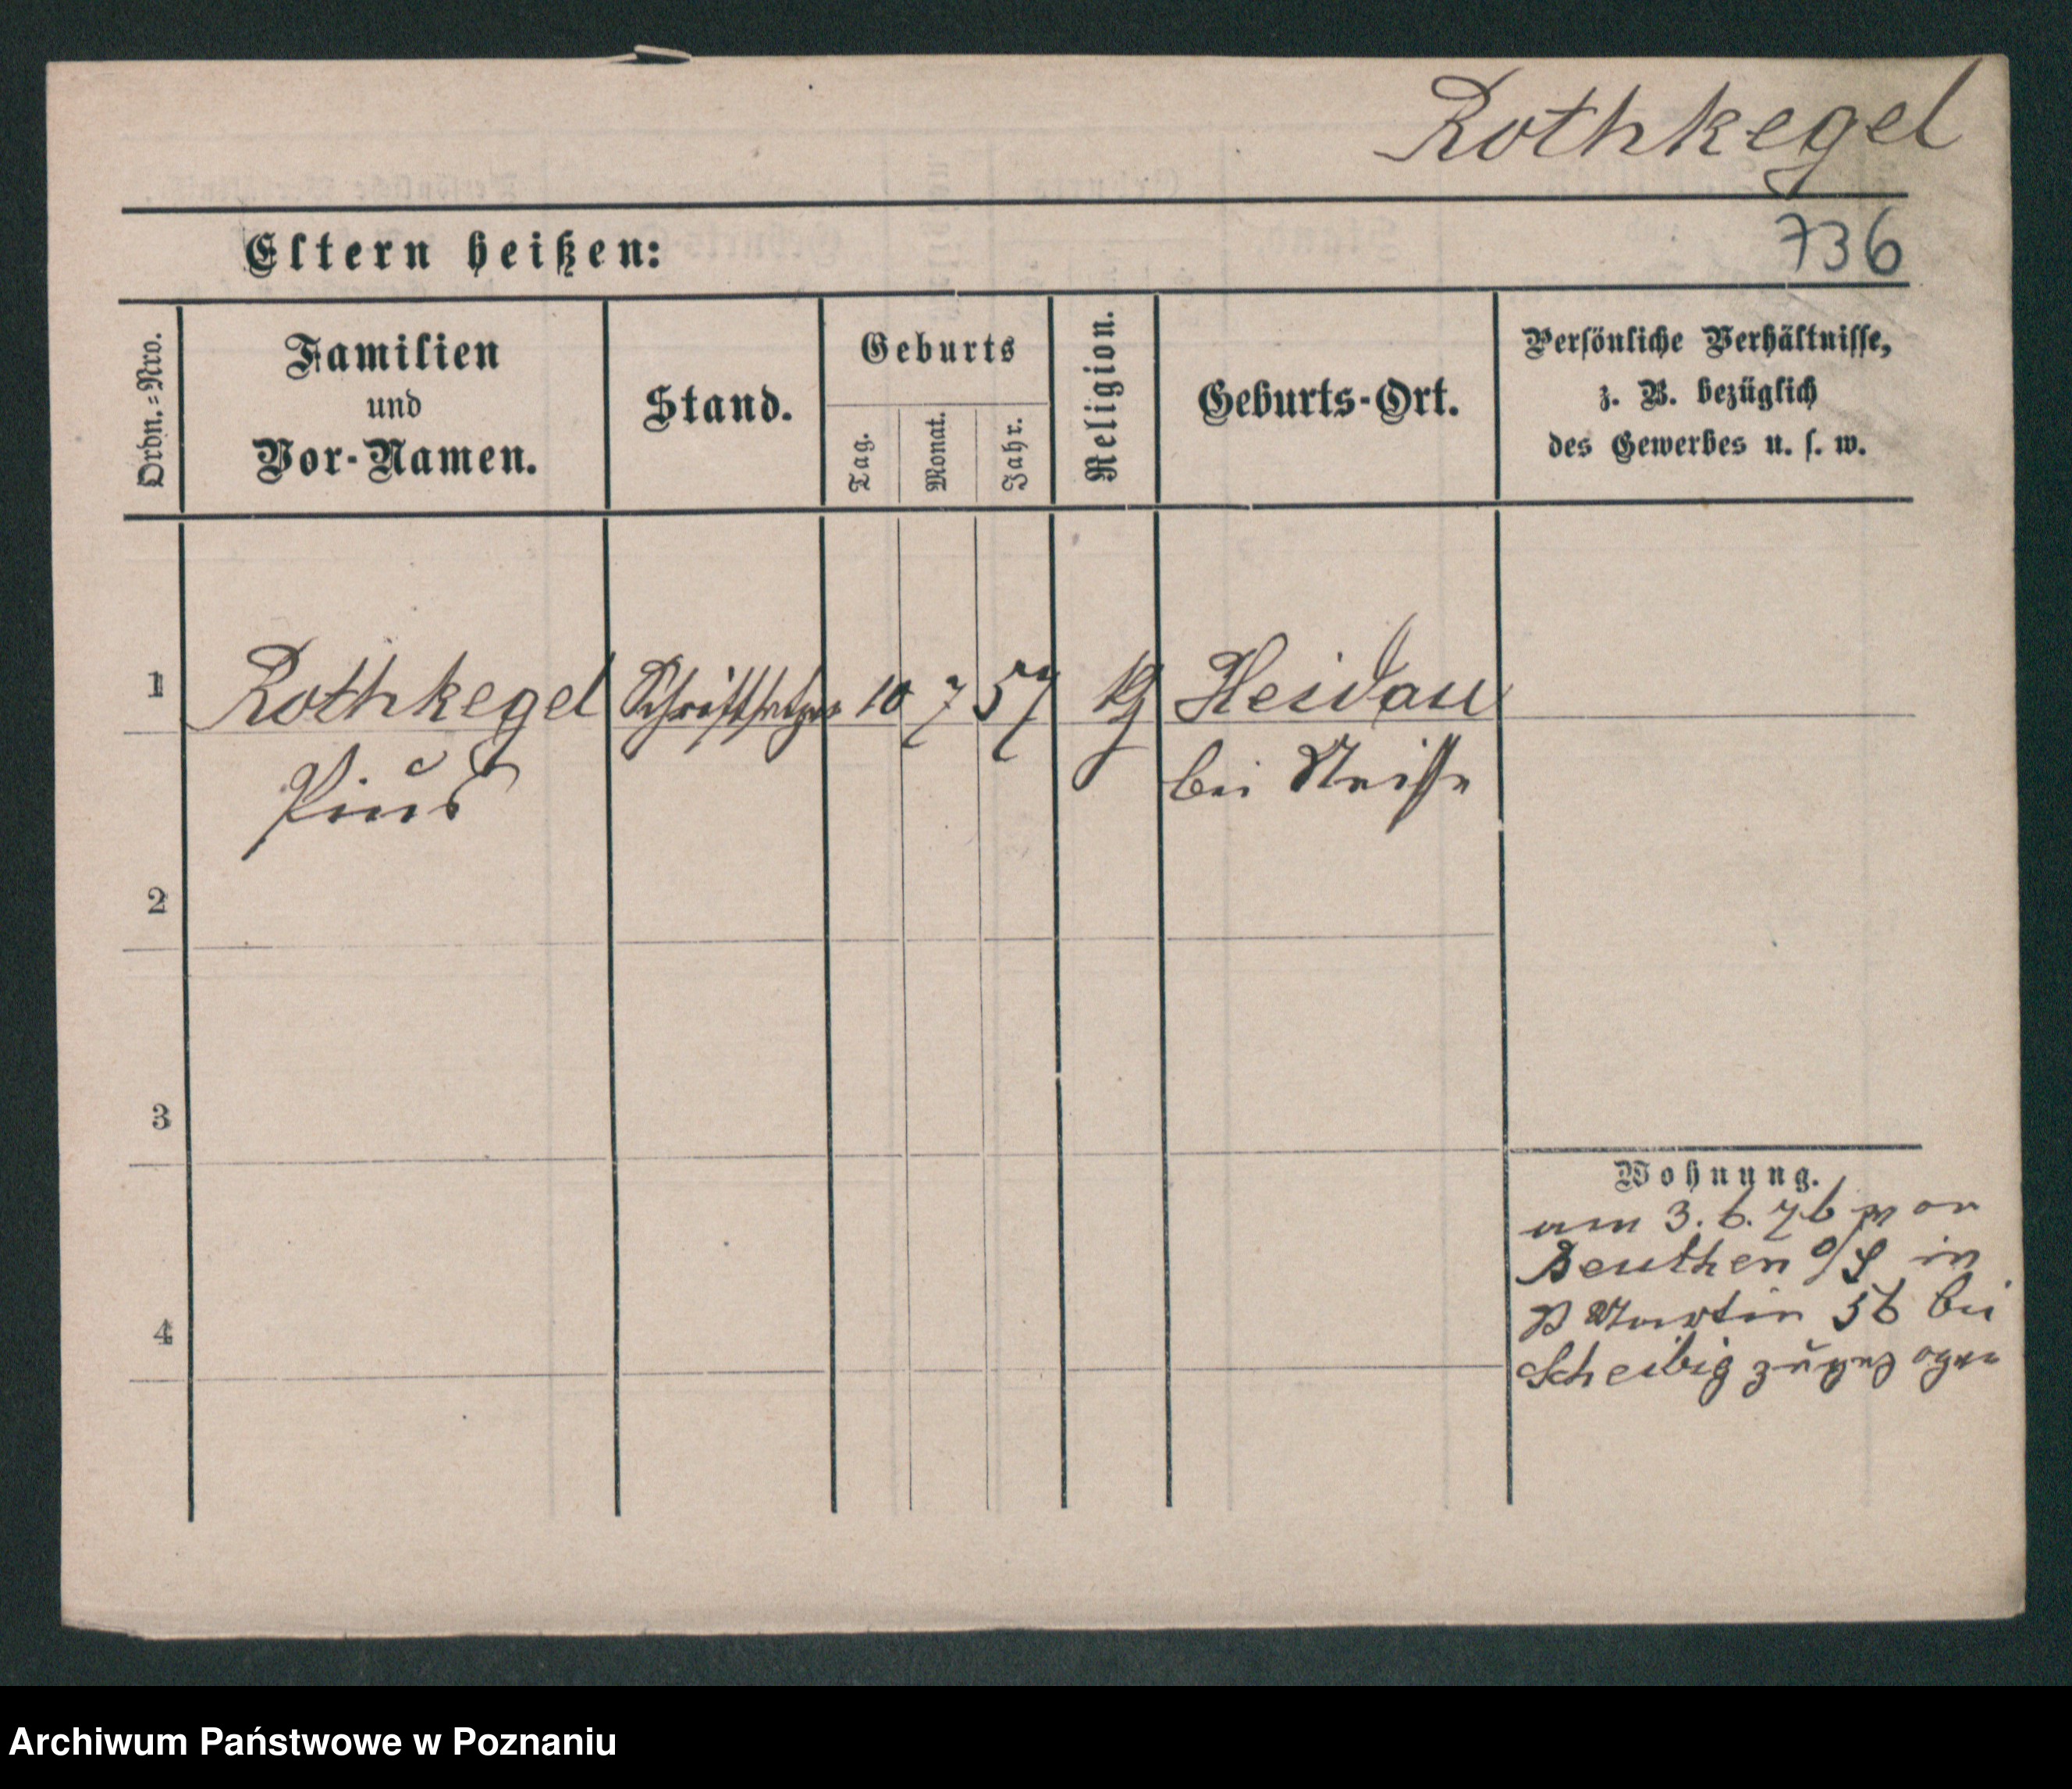 Rothkegel
736
Eltern heißen:
Ordn.-Nro.
Familien
und
Vor-Namen.
Stand.
Geburts
Tag.
Monat.
Jahr.
Religion.
Geburts-Ort.
Persönliche Verhältnisse,
z. B. bezüglich
des Gewerbes u. s. w.
1 Rothkegel Schriftsetzer 10 7 57 Heidau
Pius bei Neisse
2
3
4
Wohnung.
am 3. 6. 76 von
Beuthen o/S in
Martin 56 bei
Scheibig zugezogen
Archiwum Państwowe w Poznaniu